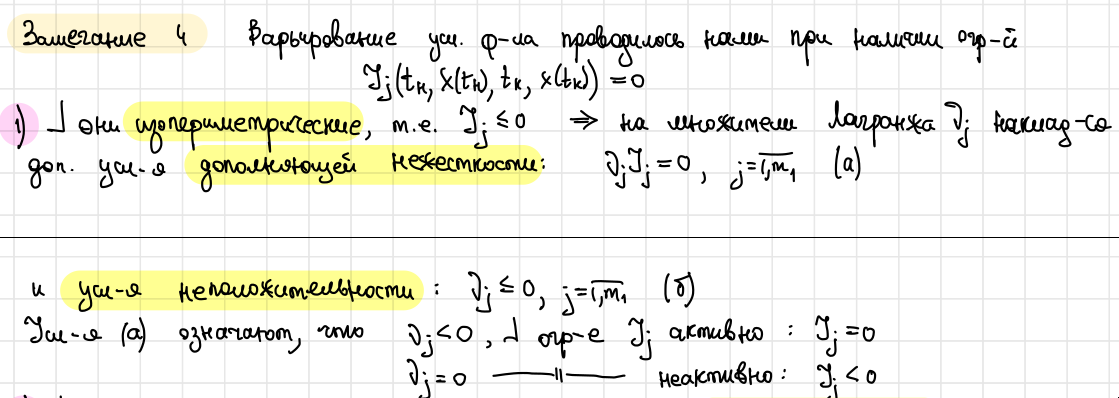 Замечание 4 Варьирование усл. ф-ла проводилось нами при наличии огр-й
J_j(t_н, x(t_н), t_к, x(t_к)) = 0
1) ⅃ они изопериметрические, т.е. J_j ≤ 0 ⇒ на множители Лагранжа ν_j наклад-ся
доп. усл-я дополняющей нежесткости: ν_j J_j = 0, j = \overline{1,m_1} (а)
и усл-я неположительности: ν_j ≤ 0, j = \overline{1,m_1} (б)
Усл-я (а) означают, что ν_j < 0, ⅃ огр-е J_j активно: J_j = 0
ν_j = 0 —— 〃 —— неактивно: J_j < 0